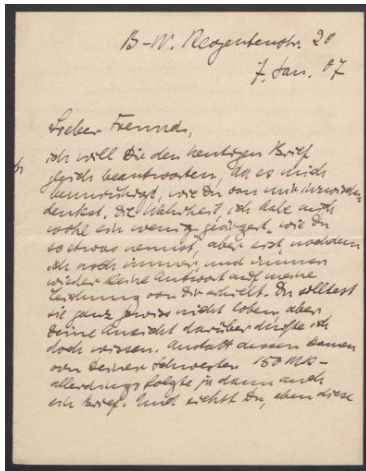 B-W. Regentenstr. 20
7. Jan. 07
Lieber Freund,
ich will Dir den heutigen Brief
gleich beantworten, da es mich
beunruhigt, wie Du von mir inzwischen
denkst. Die Wahrheit, ich habe mich
wohl ein wenig "geärgert" wie Du
so etwas nennst, aber erst nachdem
ich noch immer, und immer
wieder keine Antwort auf meine
Zeichnung von Dir erhielt. Du solltest
sie ganz gewiss nicht loben, aber
Deine Ansicht darüber dürfte ich
doch wissen. Anstatt dessen kamen
von Deiner Schwester 150 Mk -
allerdings folgte ja dann auch
ein Brief. Und siehst Du, eben diese